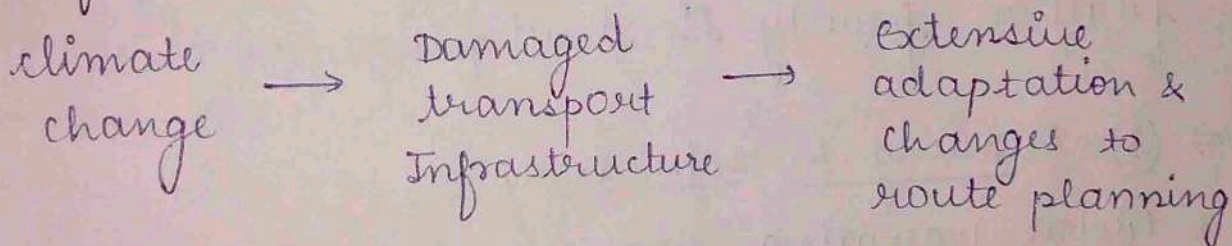 climate
change
→
Damaged
transport
Infrastructure
→
Extensive
adaptation &
changes to
route planning